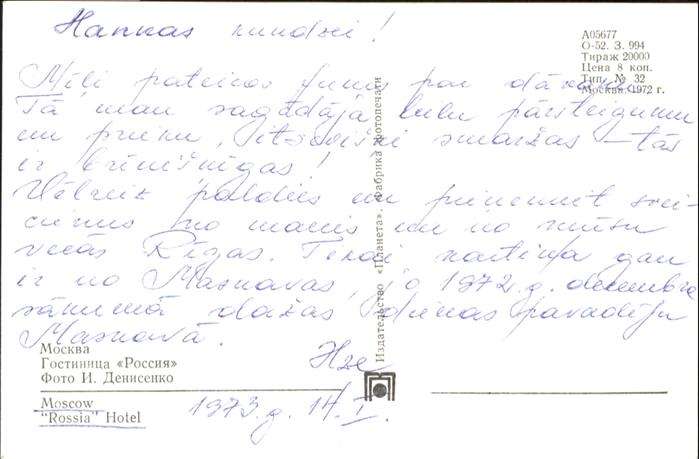 Hannas kundzei!
Mīļi pateicos Jums par dāvanu.
Tā man sagādāja lielu pārsteigumu
un prieku, it sevišķi smaržas – tās
ir brīnišķīgas!
Vēlreiz paldies un pieņemiet svei-
cienus no manis un no mūsu
vecās Rīgas. kartiņa gan
ir no Maskavas, jo 1972. g. decembra
sākumā dažas dienas pavadīju
Maskavā.
1973. g. 14. I.
А05677
О-52. З. 994
Тираж 20000
Цена 8 коп.
Тип. № 32
Москва, 1972 г.
Издательство «Планета». Фабрика фотопечати
Москва
Гостиница «Россия»
Фото И. Денисенко
Moscow
"Rossia" Hotel